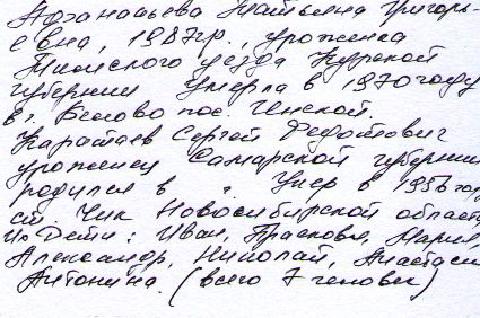 Афанасьева Татьяна Григорь-
евна, 1987гр., уроженка
Тимского уезда Курской
губернии Умерла в 1970 году
в г. Белово пос. Инской.
Каратаев Сергей Федотович
уроженец Самарской губернии
родился в г. Умер в 1956 год
ст. Чик Новосибирской област
Их Дети: Иван, Прасковья, Мария,
Александр, Николай, Анастаси
Антонина. (всего 7 человек)